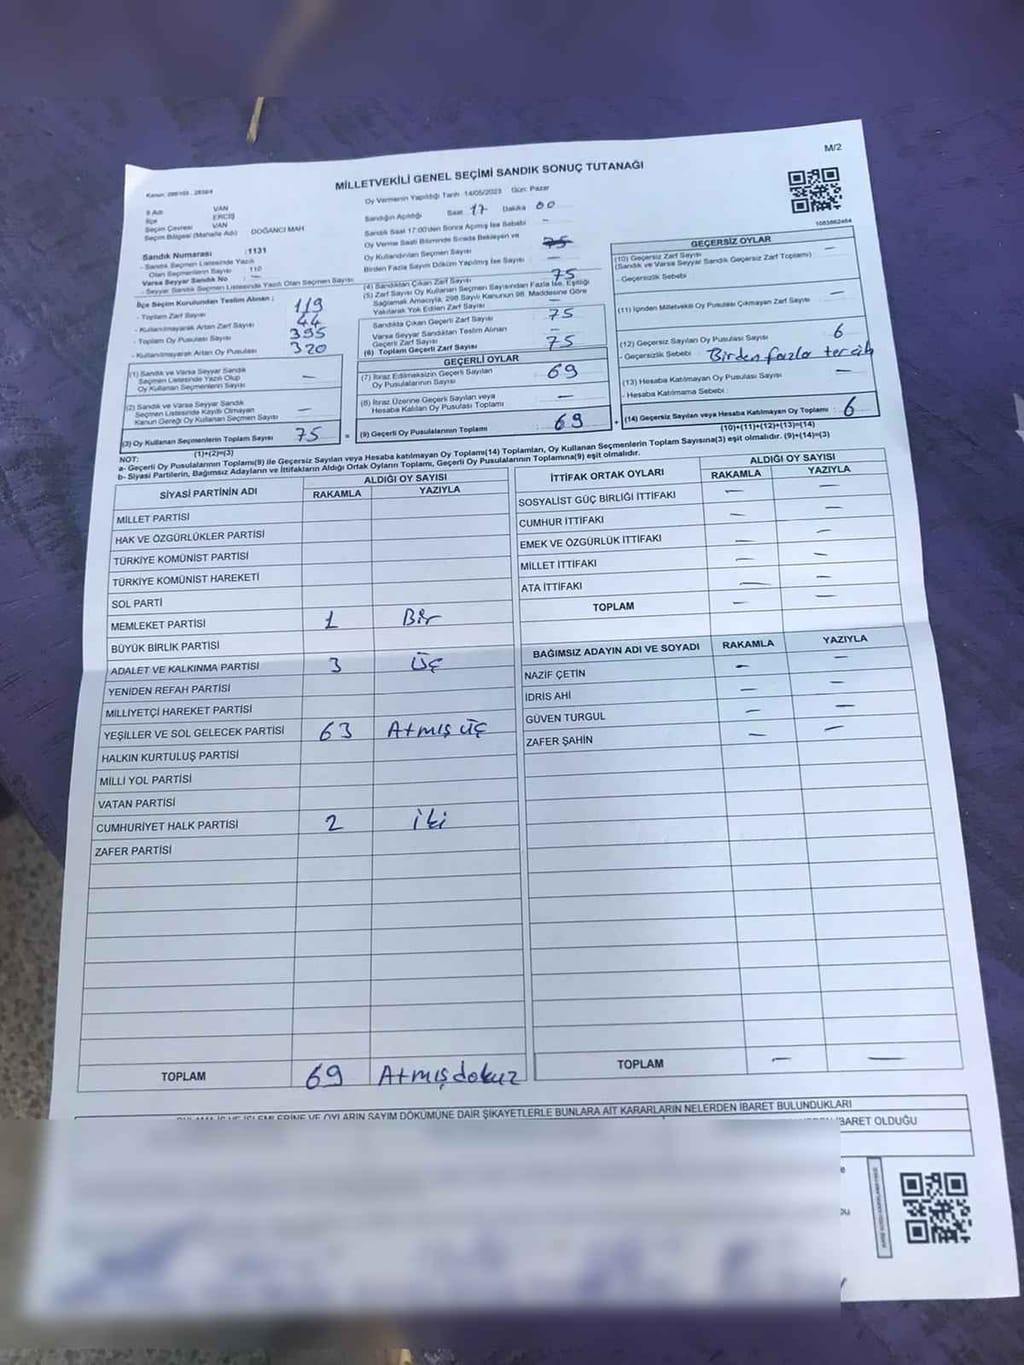 M/2
MİLLETVEKİLİ GENEL SEÇİMİ SANDIK SONUÇ TUTANAĞI
Oy Vermenin Yapıldığı Tarih 14/05/2023 Gün: Pazar
İl Adı VAN
İlçe ERCİŞ
Seçim Çevresi VAN
Seçim Bölgesi (Mahalle Adı) DOĞANCI MAH
Sandık Numarası :1131
- Sandık Seçmen Listesinde Yazılı
Olan Seçmenlerin Sayısı : 110
Varsa Seyyar Sandık No
- Seyyar Sandık Seçmen Listesinde Yazılı Olan Seçmen Sayısı
İlçe Seçim Kurulundan Teslim Alınan :
- Toplam Zarf Sayısı 119
- Kullanılmayarak Artan Zarf Sayısı 44
- Toplam Oy Pusulası Sayısı 395
- Kullanılmayarak Artan Oy Pusulası 320
(1) Sandık ve Varsa Seyyar Sandık
Seçmen Listesinde Yazılı Olup
Oy Kullanan Seçmenlerin Sayısı —
(2) Sandık ve Varsa Seyyar Sandık
Seçmen Listesinde Kaydı Olmayan
Kanun Gereği Oy Kullanan Seçmen Sayısı —
(3) Oy Kullanan Seçmenlerin Toplam Sayısı 75
(1)+(2)=(3)
Sandığın Açıldığı Saat 17 Dakika 00
Sandık Saat 17:00'den Sonra Açılmış İse Sebebi —
Oy Verme Saati Bitiminde Sırada Bekleyen ve
Oy Kullandırılan Seçmen Sayısı
Birden Fazla Sayım Döküm Yapılmış İse Sayısı —
(4) Sandıktan Çıkan Zarf Sayısı 75
(5) Zarf Sayısı Oy Kullanan Seçmen Sayısından Fazla İse, Eşitliği
Sağlamak Amacıyla, 298 Sayılı Kanunun 98. Maddesine Göre
Yakılarak Yok Edilen Zarf Sayısı —
Sandıkta Çıkan Geçerli Zarf Sayısı 75
Varsa Seyyar Sandıktan Teslim Alınan
Geçerli Zarf Sayısı —
(6) Toplam Geçerli Zarf Sayısı 75
GEÇERLİ OYLAR
(7) İtiraz Edilmeksizin Geçerli Sayılan
Oy Pusulalarının Sayısı 69
(8) İtiraz Üzerine Geçerli Sayılan veya
Hesaba Katılan Oy Pusulası Toplamı —
(9) Geçerli Oy Pusulalarının Toplamı 69
GEÇERSİZ OYLAR
(10) Geçersiz Zarf Sayısı
(Sandık ve Varsa Seyyar Sandık Geçersiz Zarf Toplamı) —
- Geçersizlik Sebebi
(11) İçinden Milletvekili Oy Pusulası Çıkmayan Zarf Sayısı —
(12) Geçersiz Sayılan Oy Pusulası Sayısı 6
- Geçersizlik Sebebi Birden fazla tercih
(13) Hesaba Katılmayan Oy Pusulası Sayısı —
- Hesaba Katılmama Sebebi
(14) Geçersiz Sayılan veya Hesaba Katılmayan Oy Toplamı : 6
(10)+(11)+(12)+(13)=(14)
NOT:
a- Geçerli Oy Pusulalarının Toplamı(9) ile Geçersiz Sayılan veya Hesaba katılmayan Oy Toplamı(14) Toplamları, Oy Kullanan Seçmenlerin Toplam Sayısına(3) eşit olmalıdır. (9)+(14)=(3)
b- Siyasi Partilerin, Bağımsız Adayların ve İttifakların Aldığı Ortak Oyların Toplamı, Geçerli Oy Pusulalarının Toplamına(9) eşit olmalıdır.
SİYASİ PARTİNİN ADI ALDIĞI OY SAYISI
RAKAMLA YAZIYLA
MİLLET PARTİSİ
HAK VE ÖZGÜRLÜKLER PARTİSİ
TÜRKİYE KOMÜNİST PARTİSİ
TÜRKİYE KOMÜNİST HAREKETİ
SOL PARTİ
MEMLEKET PARTİSİ 1 Bir
BÜYÜK BİRLİK PARTİSİ
ADALET VE KALKINMA PARTİSİ 3 Üç
YENİDEN REFAH PARTİSİ
MİLLİYETÇİ HAREKET PARTİSİ
YEŞİLLER VE SOL GELECEK PARTİSİ 63 Atmış üç
HALKIN KURTULUŞ PARTİSİ
MİLLİ YOL PARTİSİ
VATAN PARTİSİ
CUMHURİYET HALK PARTİSİ 2 iki
ZAFER PARTİSİ
TOPLAM 69 Atmışdokuz
İTTİFAK ORTAK OYLARI ALDIĞI OY SAYISI
RAKAMLA YAZIYLA
SOSYALİST GÜÇ BİRLİĞİ İTTİFAKI — —
CUMHUR İTTİFAKI — —
EMEK VE ÖZGÜRLÜK İTTİFAKI — —
MİLLET İTTİFAKI — —
ATA İTTİFAKI — —
TOPLAM — —
BAĞIMSIZ ADAYIN ADI VE SOYADI RAKAMLA YAZIYLA
NAZİF ÇETİN — —
İDRİS AHİ — —
GÜVEN TURGUL — —
ZAFER ŞAHİN — —
TOPLAM — —
İŞLEMLERİNE VE OYLARIN SAYIM DÖKÜMÜNE DAİR ŞİKAYETLERLE BUNLARA AİT KARARLARIN NELERDEN İBARET BULUNDUKLARI
İBARET OLDUĞU